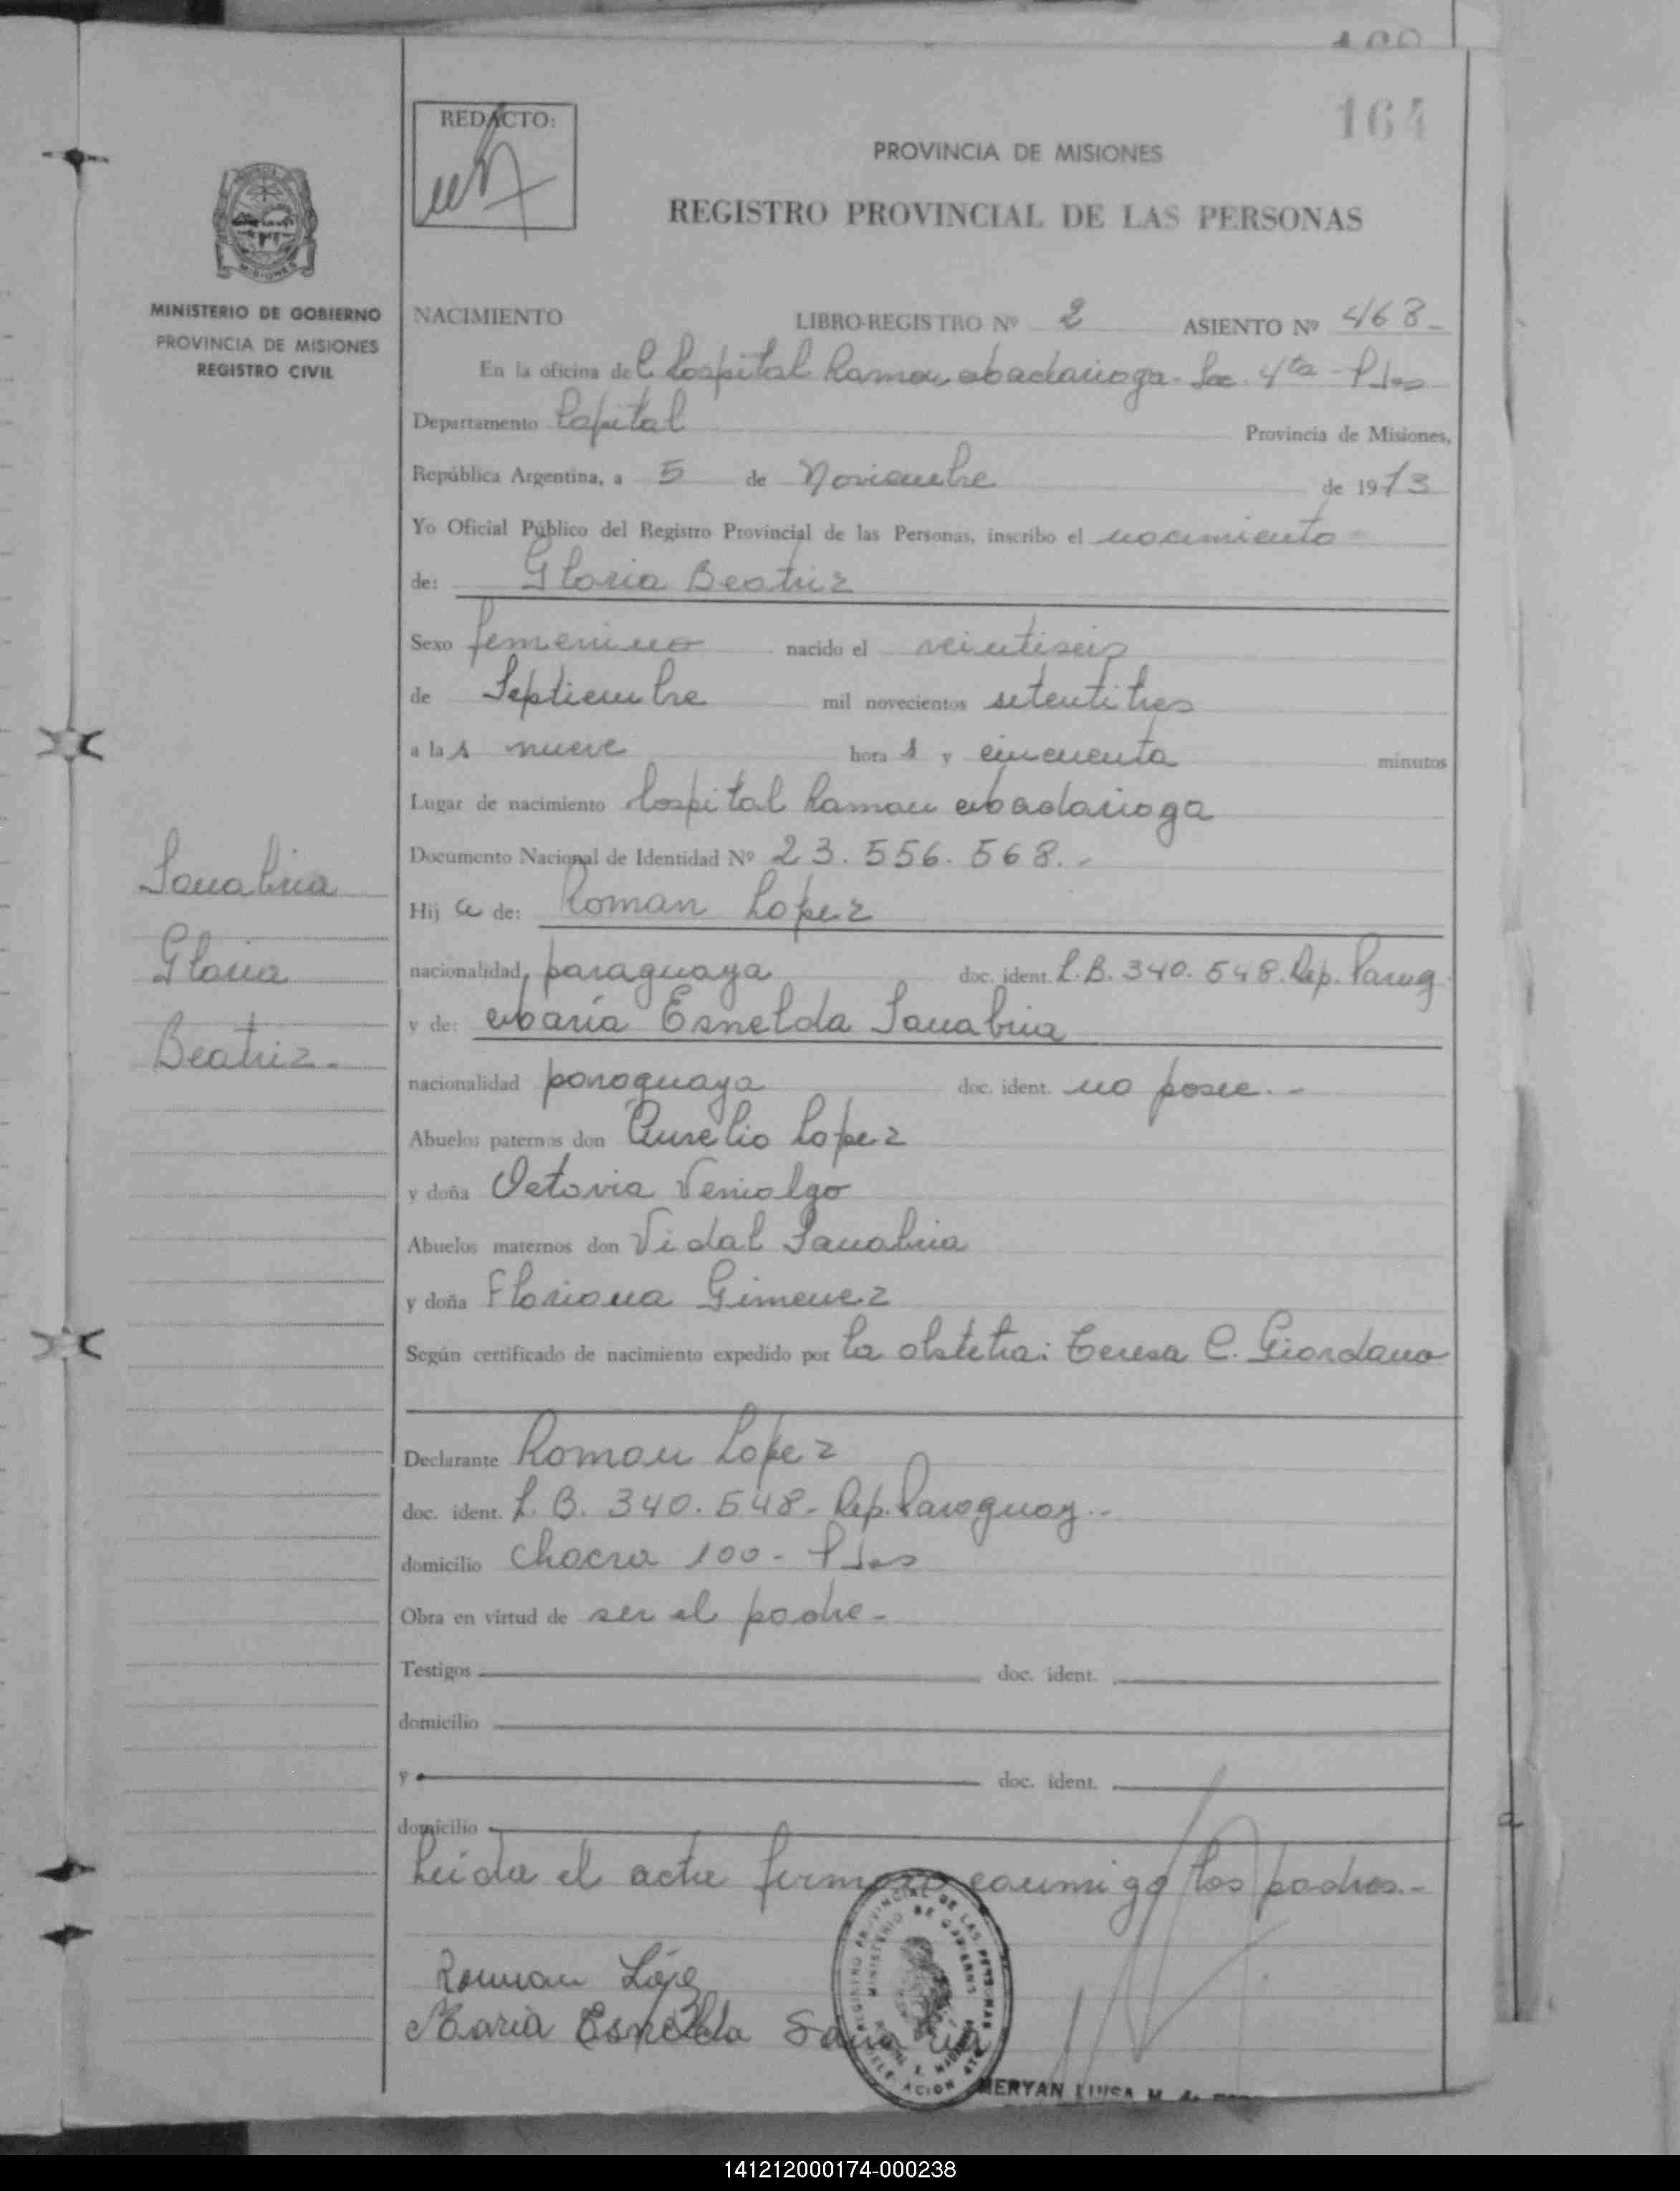 164
REDACTO:
PROVINCIA DE MISIONES
REGISTRO PROVINCIAL DE LAS PERSONAS
MINISTERIO DE GOBIERNO
PROVINCIA DE MISIONES
REGISTRO CIVIL
NACIMIENTO LIBRO-REGISTRO Nº 2 ASIENTO Nº 468-
En la oficina del Hospital Ramon Madariaga - Sec. 4ta - Pdas
Departamento Capital Provincia de Misiones,
República Argentina, a 5 de Noviembre de 1973
Yo Oficial Público del Registro Provincial de las Personas, inscribo el nacimiento
de: Gloria Beatriz
Sexo femenino nacido el veintiseis
de Septiembre mil novecientos setentitres
a las nueve horas y cincuenta minutos
Lugar de nacimiento Hospital Ramon Madariaga
Documento Nacional de Identidad Nº 23.556.568.-
Hija de: Roman Lopez
nacionalidad, paraguaya doc. ident. L.B. 340.548. Rep. Parag
y de: Maria Esnelda Sanabria
nacionalidad paraguaya doc. ident. no posee.-
Abuelos paternos don Aurelio Lopez
y doña Octavia Venialgo
Abuelos maternos don Vidal Sanabria
y doña Floriana Gimenez
Según certificado de nacimiento expedido por la obstetra: Teresa C. Giordano
Sanabria
Gloria
Beatriz.-
Declarante Roman Lopez
doc. ident. L.B. 340.548- Rep. Paraguay.-
domicilio Chacra 100- Pdas
Obra en virtud de ser el padre-
Testigos doc. ident.
domicilio
y doc. ident.
domicilio
Leida el acta firman conmigo los padres.-
Roman López
Maria Esnelda Sanabria
REGISTRO PROVINCIAL DE LAS PERSONAS
MINISTERIO DE GOBIERNO
MERYAN LUISA M. de
141212000174-000238